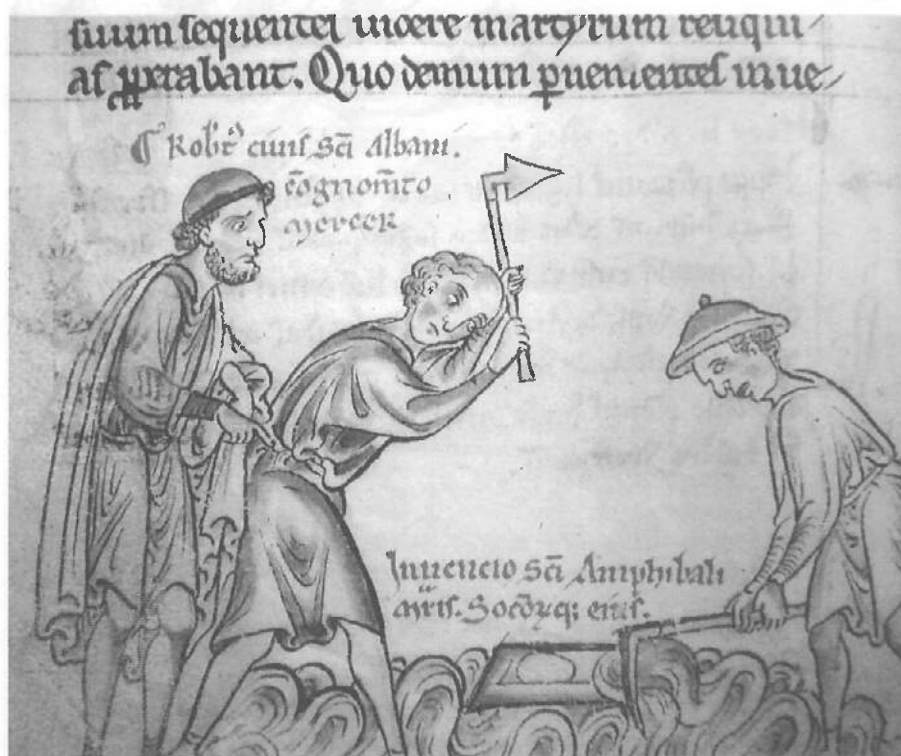 suum sequentes uidere martyrum reliqui
as sperabant. Quo demum puenientes inue
¶ Robt' ciuis Sci Albani.
cognom̄to
Mercer
Inuencio Sci Amphibali
Mr̄is. Socior̄q; eius.